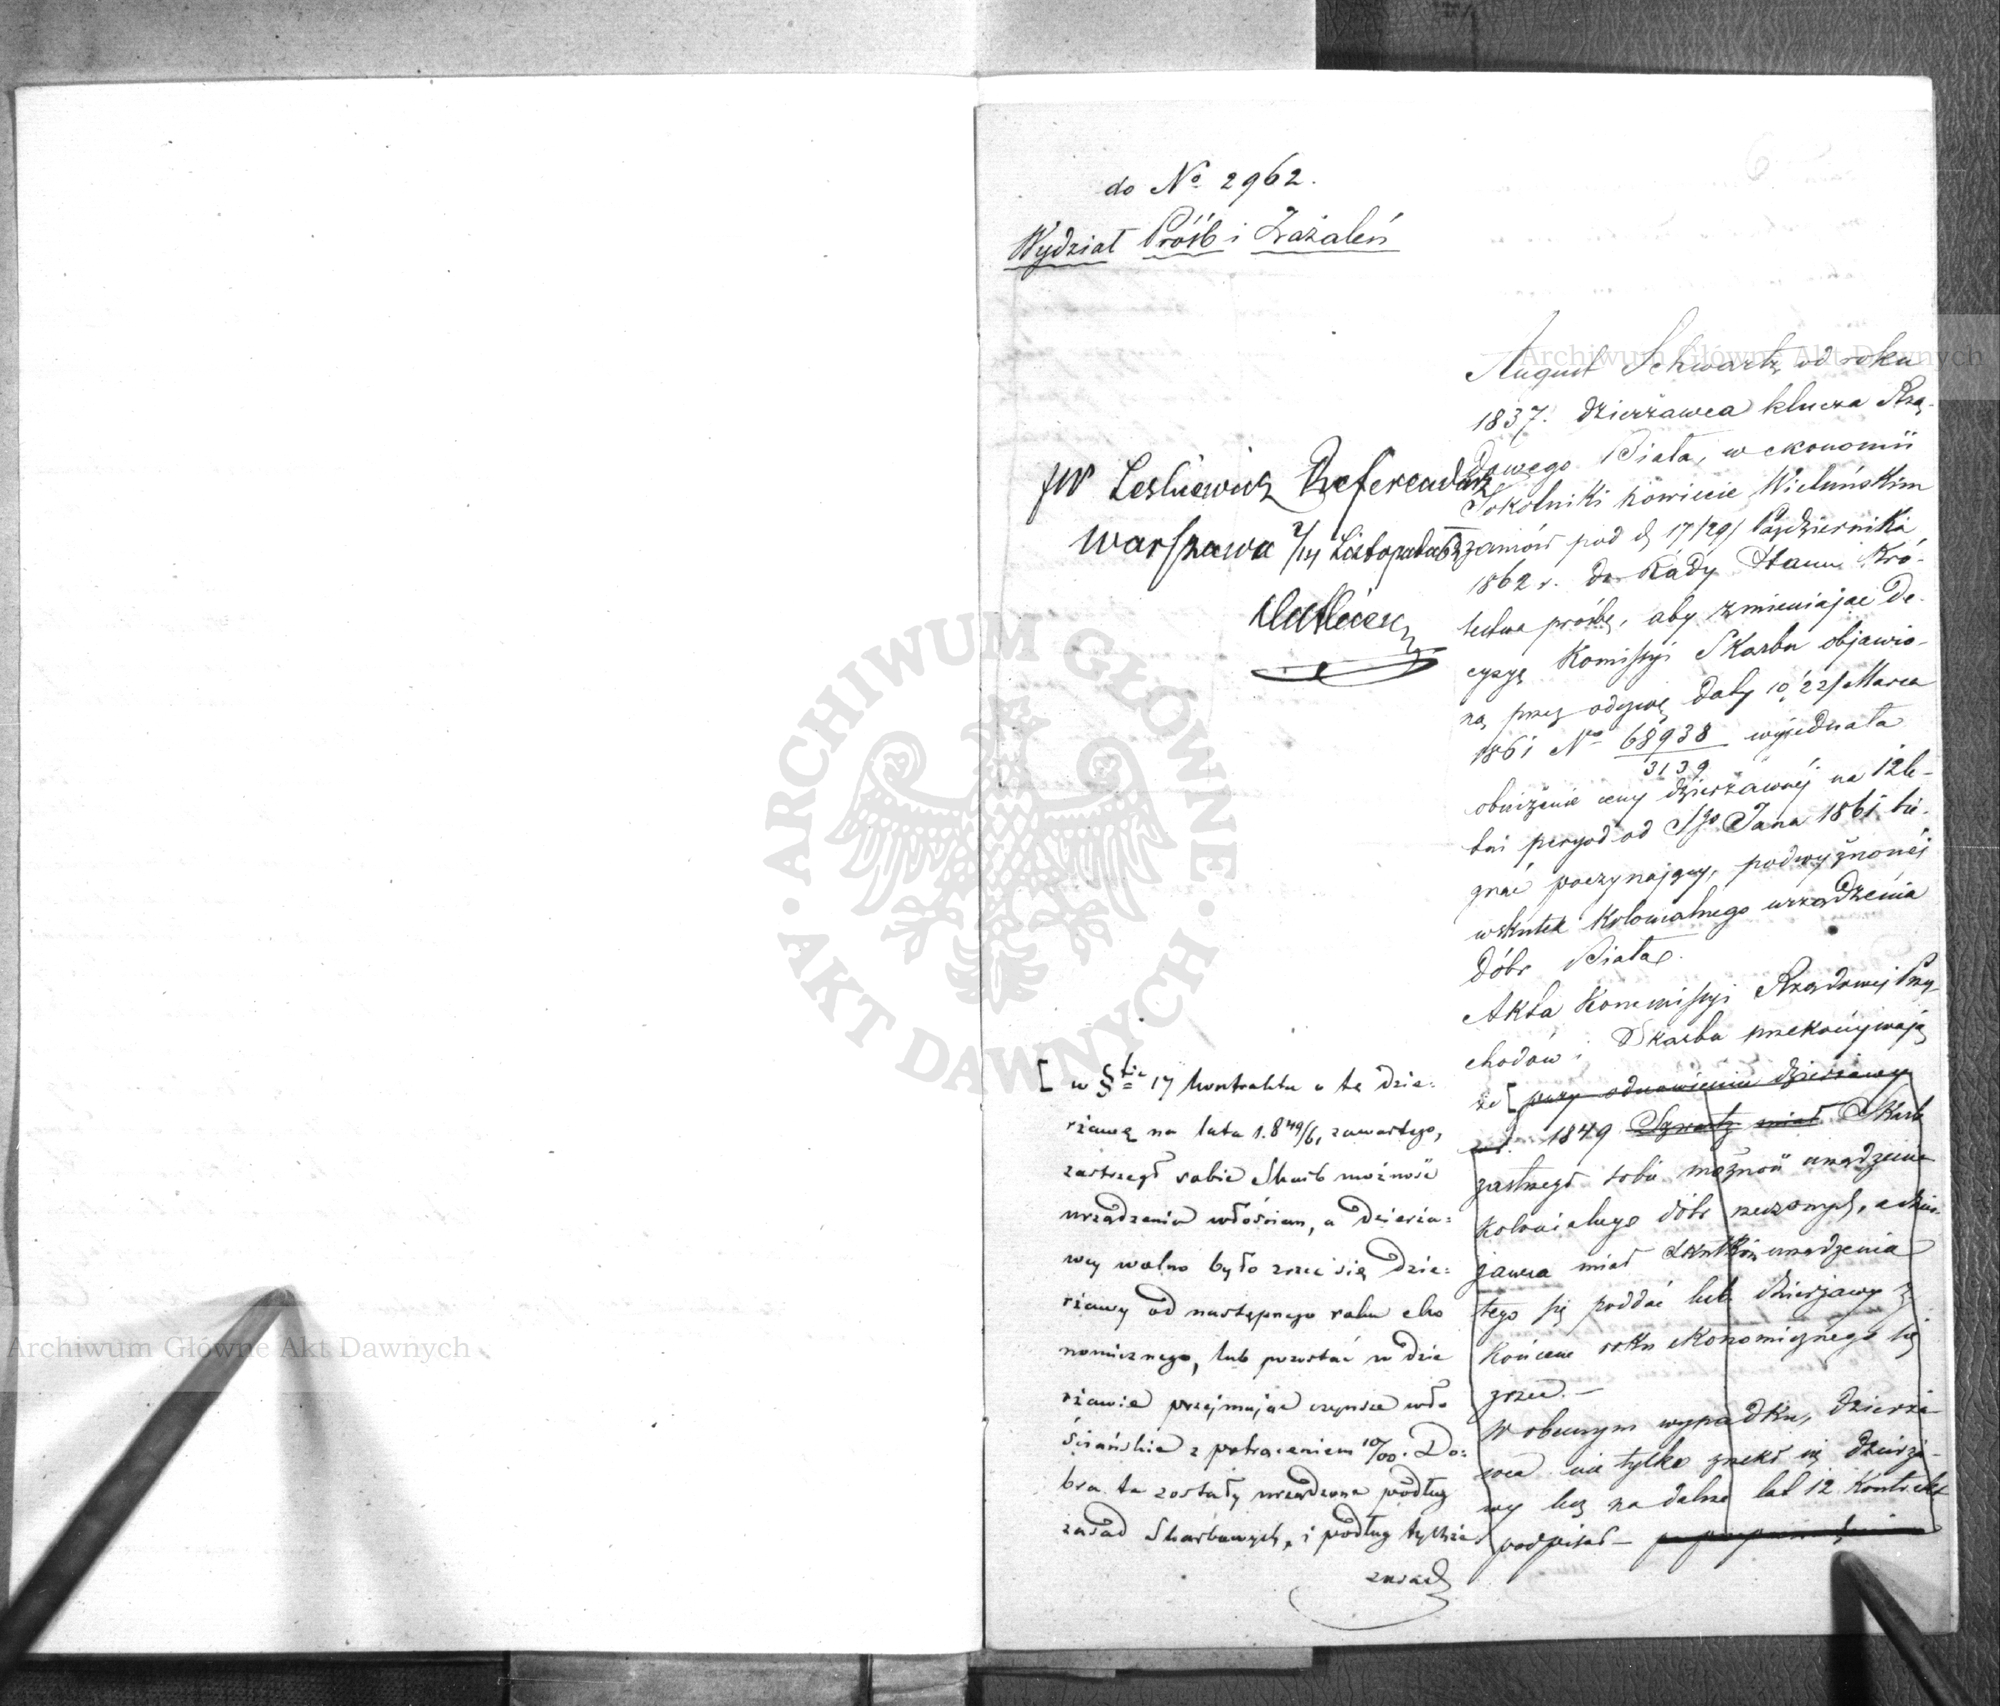 do No 2962.
Wydział Próśb i Zażaleń
JW Leśniewicz Referendarz
Warszawa 2/14 Listopada
August Schwartz od roku
1837. dzierżawca klucza Rzą-
dowego Biała, w ekonomii
Sokolniki powiecie Wieluńskim
zaniósł pod d. 17/29/ Października
1862 r. do Rady Stanu Kró-
lestwa prośbę, aby zmieniając De-
cyzyę Komissyi Skarbu objawio-
ną przez odezwę daty 10/22/ Marca
1861 No 68938/3139 wyjednała
obniżenie ceny dzierżawnéj na 12le-
tni peryod od Sgo Jana 1861 bie-
gnąć poczynający, podwyższonéj
wskutek kolonialnego urządzenia
dóbr Biała.
Akta Kommissyi Rządowej Przy-
chodów i Skarbu przekonywają
że [ przy odnowieniu dzierżawy
w r. 1849 Szwartz miał Skarb
zastrzegł sobie możność urządzenia
kolonialnego dóbr rzeczonych, a dzier-
żawca miał skutkom urządzenia
tego się poddać lub dzierżawy z
końcem roku ekonomicznego się
zrzec. —
W obecnym wypadku, dzierża-
wca nie tylko zrzekł się dzierża-
wy lecz na dalsze lat 12 Kontrakt
podpisał —
[ w §fie 17 kontraktu o tę dzie-
rżawę na lata 1849/61 zawartego,
zastrzegł sobie Skarb możność
urządzenia włościan, a dzierża-
wcy wolno było zrzec się dzie-
rżawy od następnego roku eko
nomicznego, lub pozostać w dzie
rżawie przejmując czynsze wło
ściańskie z potrąceniem 10/00. Do-
bra te zostały urządzone podług
zasad Skarbowych, i podług tychże
zasad
Archiwum Główne Akt Dawnych
Archiwum Główne Akt Dawnych
ARCHIWUM GŁÓWNE
AKT DAWNYCH